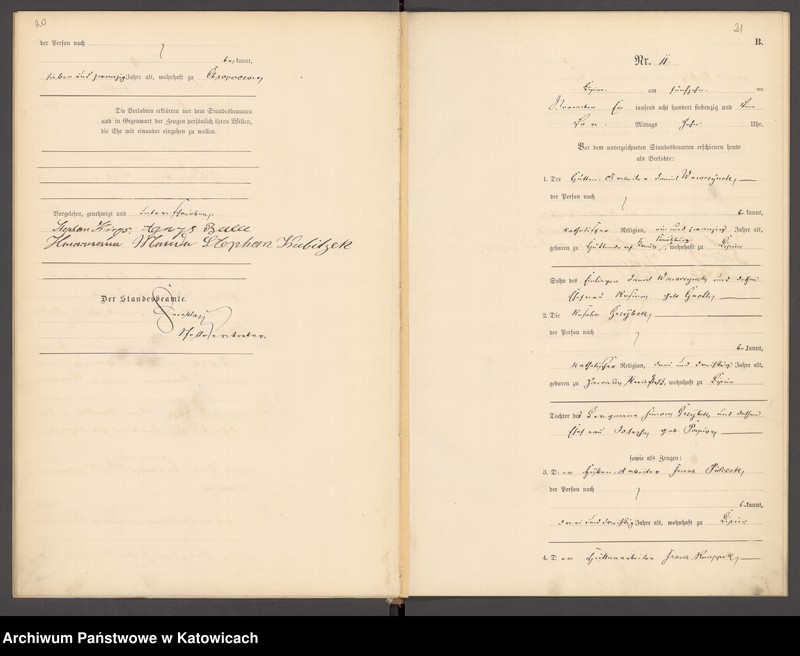 20
der Person nach
be kannt,
sieben und zwanzig Jahre alt, wohnhaft zu Chropaczow
Die Verlobten erklärten vor dem Standesbeamten
und in Gegenwart der Zeugen persönlich ihren Willen,
die Ehe mit einander eingehen zu wollen.
Vorgelesen, genehmigt und unterschrieben,
Stephan
Stephan Kubitzek
Der Standesbeamte.
Stellvertreter.
21
B.
Nr. 11
Lipine am fünfzehn ten
November Ein tausend acht hundert siebenzig und vier
Vor Mittags zehn Uhr.
Vor dem unterzeichneten Standesbeamten erschienen heute
als Verlobte:
1. Der Hütten Arbeiter Daniel Wawrzynek,
der Person nach
be kannt,
katholischer Religion, ein und zwanzig Jahre alt,
geboren zu wohnhaft zu Lipine
Sohn des Einlieger Daniel Wawrzynek und dessen
Ehefrau Rosina geb.
2. Die
der Person nach
be kannt,
katholischer Religion, drei und dreißig Jahre alt,
geboren zu wohnhaft zu Lipine
Tochter des Bergmann Simon und dessen
Ehefrau Josepha geb.
sowie als Zeugen:
3. D er Hütten Arbeiter Franz
der Person nach
be kannt,
drei und dreißig Jahre alt, wohnhaft zu Lipine
4. D er Hüttenarbeiter Franz
Archiwum Państwowe w Katowicach